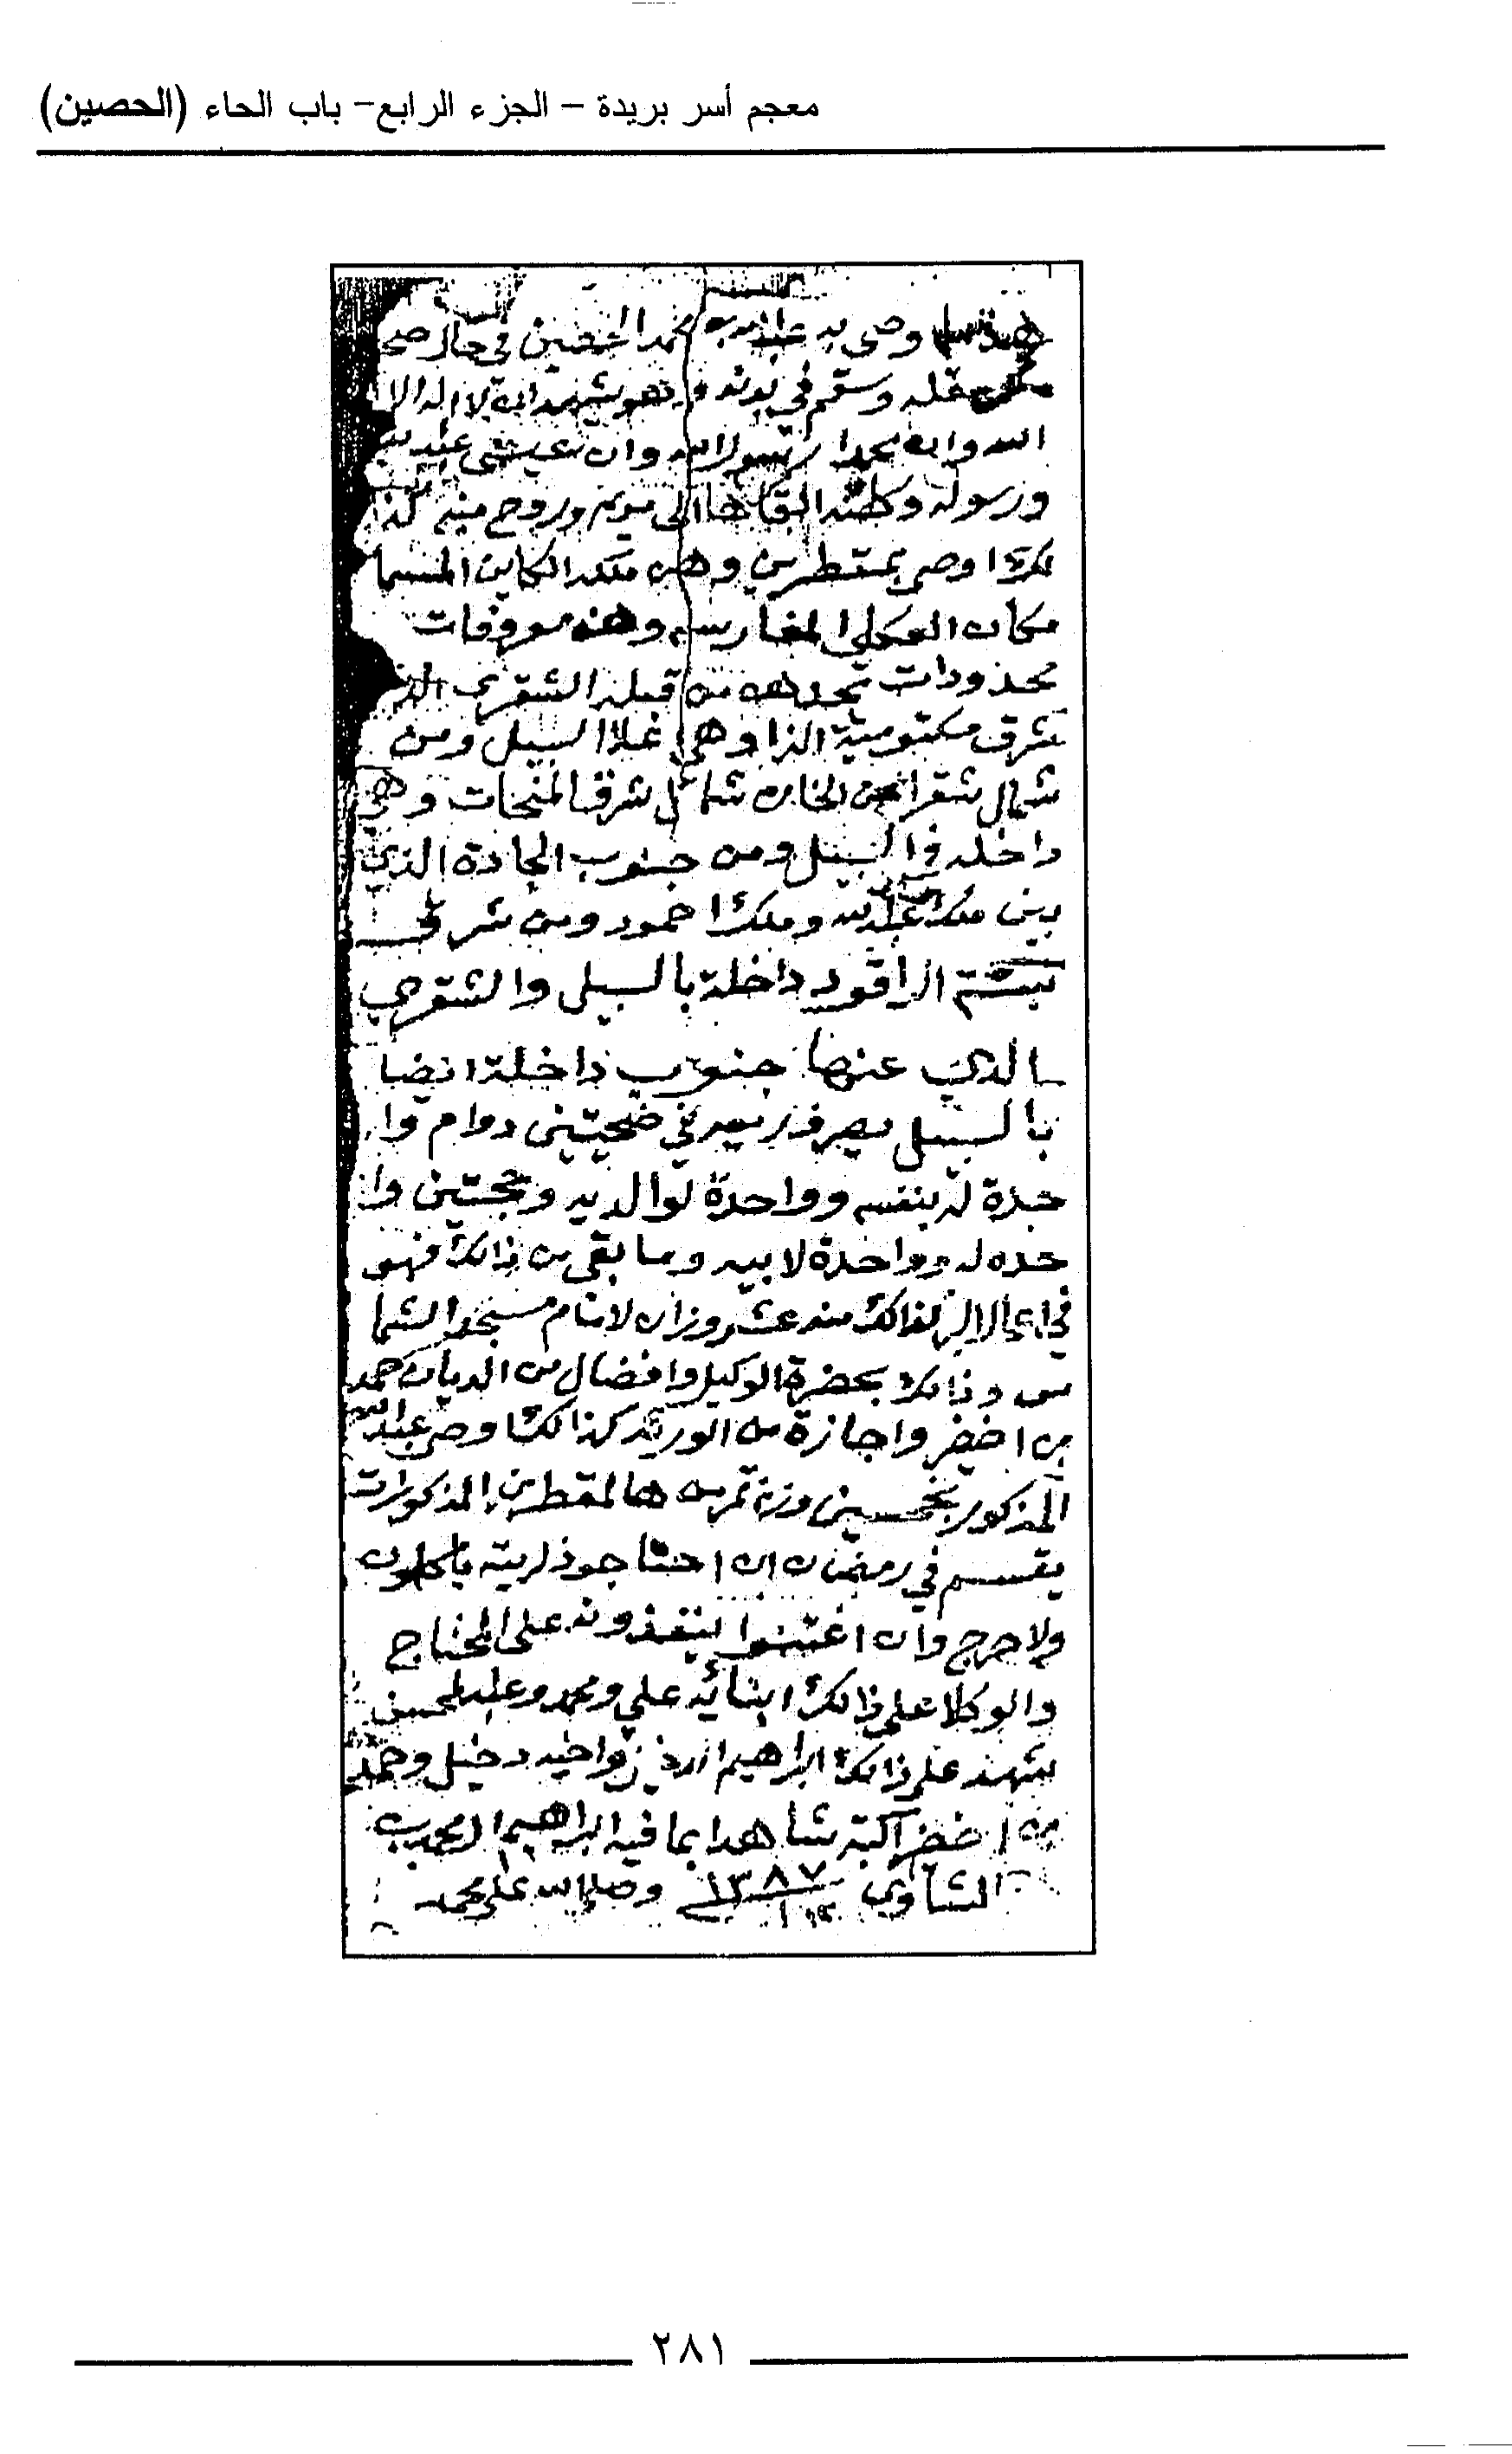 معجم أسر بريدة – الجزء الرابع– باب الحاء (الحصين)
وصى به عبدالله محمد الحصين في حال صحة
عقله وسقم في بدنه وهو يشهد ان لا اله الا
الله وان محمدا رسول الله وان عيسى عبدالله
ورسوله وكلمته القاها الى مريم وروح منه
اوصى بمقطرين وهن ملكه الكاين المسما
مكان العكلي المغارسه وهنه معروفات
محدودات تحدهن من قبله الشقرى
شرق مكتومية وهي السبيل ومن
شمال شقرا شرق المنحات وهي
داخله في السبيل ومن جنوب الجادة الذي
بين ملك عبدالله وملك احمود ومن شرق
الراقود داخلة بالسبيل والشقرى
الذي عنها جنوب داخلة ايضا
بالسبيل يصرف ريعه في ضحيتين دوام وا
حدة له بنفسه وواحدة لوالديه وحجتين وا
حده له وواحدة لابيه وما بقى من ذالك فهو
في اعمال البر كذالك منه عشر وزان لامام مسجد الشما
س وذالك بحضرة الوكيل من الديان حمد
بن اخضير واجازة من الورثه كذالك اوصى عبدالله
المذكور بخمسين وزنة تمر من هالمقطرين المذكورات
يقسم في رمضان ان احتاجو ذريته ياكلون
ولا حرج وان اغتنوا ينفذونه على المحتاج
والوكلا على ذالك ابنائه علي ومحمد وعبدالمحسن
شهد على ذالك ابراهيم واخيه دخيل وحمد
بن اخضير كتبه شاهدا بما فيه ابراهيم المحمد
الشاوي ١٣٨٧ وصلى الله على محمد
٢٨١